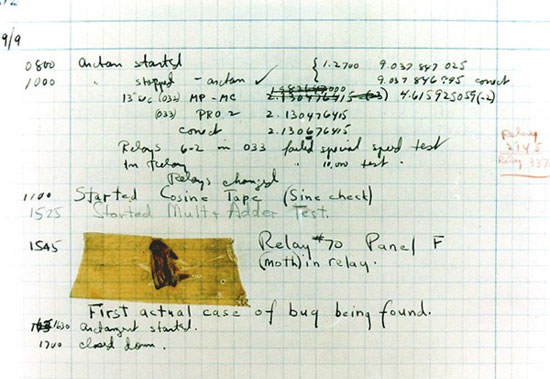 9/9
0800 antan started
1000 " stopped - antan ✓ { 1.2700 9.037 847 025
9.037 846 995 conect
13"uc (032) MP - MC 2.130476415 (-3) 4.615925059(-2)
(033) PRO 2 2.130476415
conect 2.130676415
Relays 6-2 in 033 failed special speed test
In Relay " 10,000 test .
Relays changed
Relay
2145
Relay 337
1100 Started Cosine Tape (Sine check)
1525 Started Mult + Adder Test.
1545 Relay #70 Panel F
(moth) in relay.
First actual case of bug being found.
1630 antangent started.
1700 closed down.